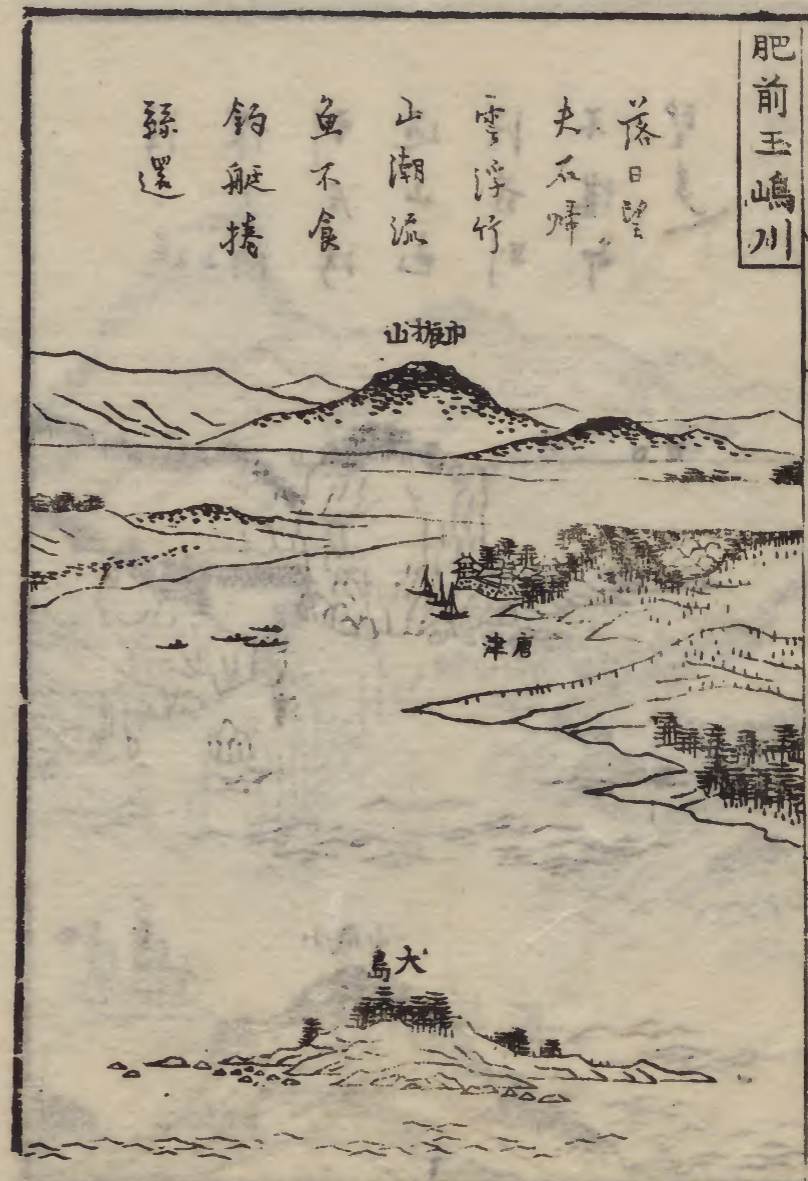 肥前玉嶋川
落日望
夫石帰
雲浮竹
山潮流
魚不食
釣艇捲
縣還
巾振山
唐津
大島